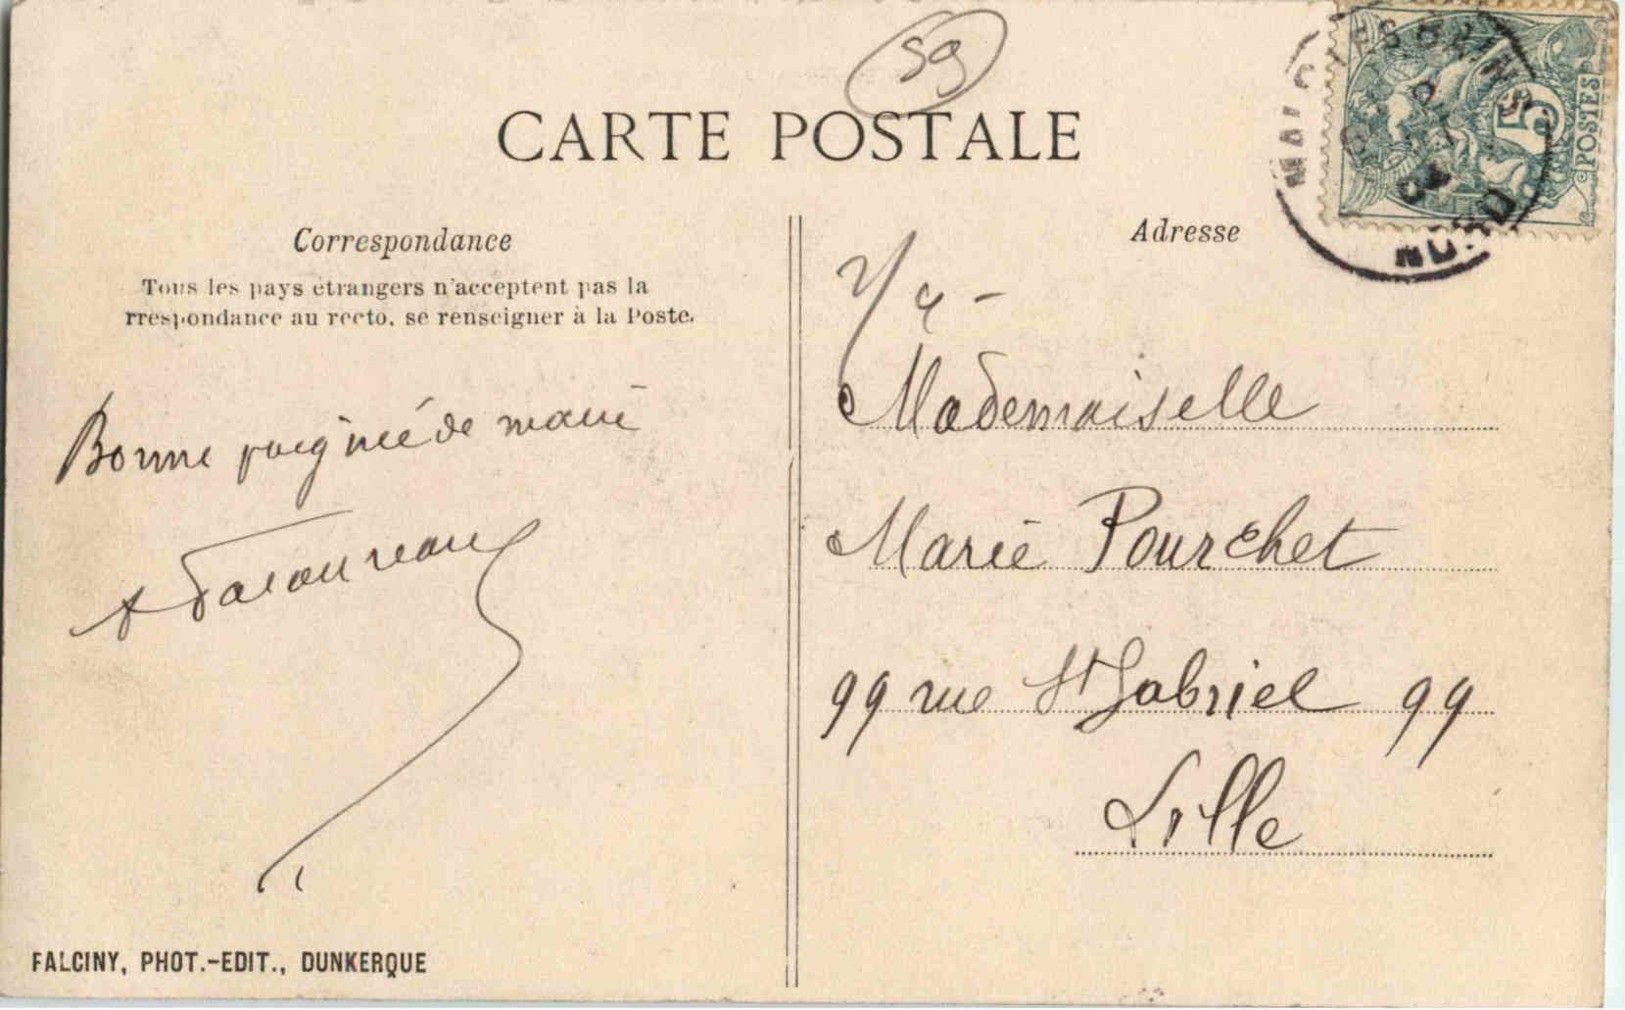 59
CARTE POSTALE
MALO LES BAINS
NORD
5
POSTES
Correspondance
Tous les pays étrangers n'acceptent pas la
rrespondance au recto, se renseigner à la Poste.
Bonne poignée de main
Adresse
Mademoiselle
Marie Pourchet
99 rue St Gabriel 99
Lille
FALCINY, PHOT.-EDIT., DUNKERQUE